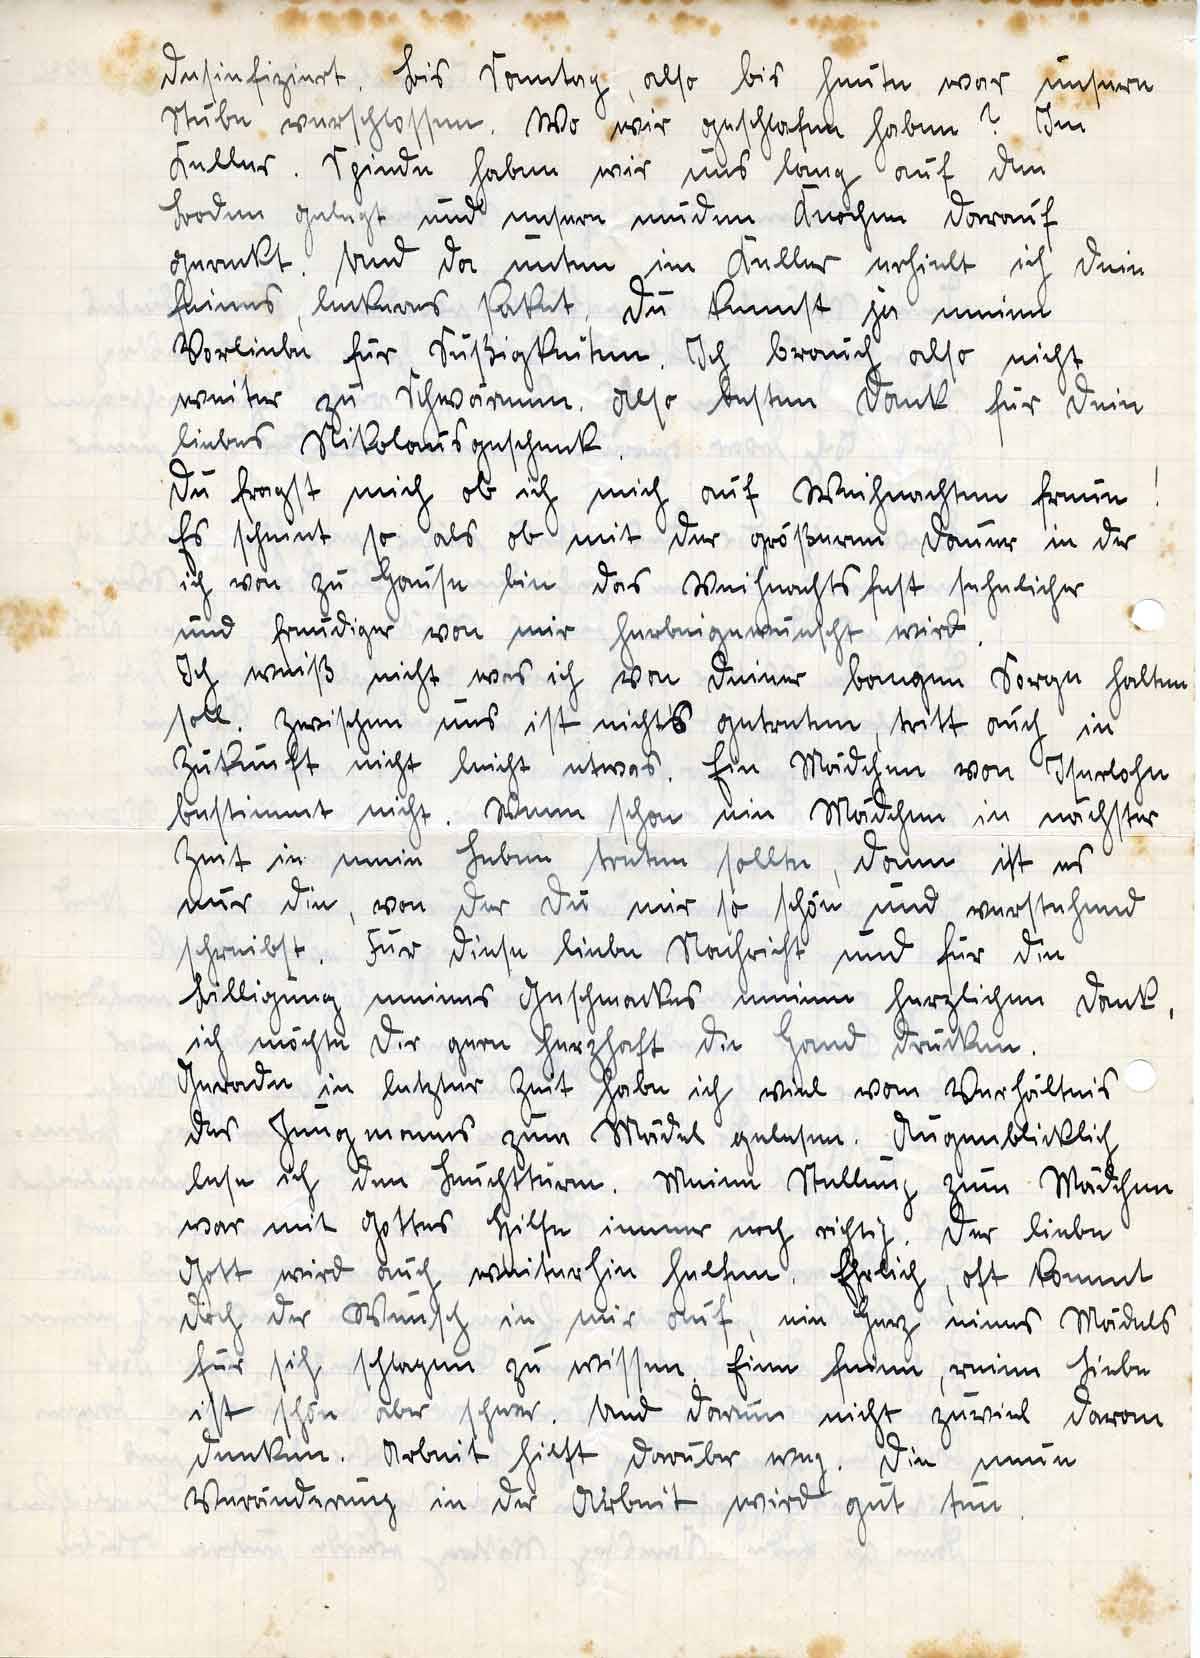 desinfiziert. Bis Sonntag, also bis heute war unsere
Stube verschlossen. Wo wir geschlafen haben? Im
Keller. Spinde haben wir uns lang auf den
Boden gelegt und unsere müden Knochen darauf
gereckt. Und da unten im Keller erhielt ich Dein
feines, leckeres Paket. Du kennst ja meine
Vorliebe für Süßigkeiten. Ich brauch also nicht
weiter zu Schwärmen. Also besten Dank für Dein
liebes Nikolausgeschenk.
Du fragst mich ob ich mich auf Weihnachten freue!
Es scheint so als ob mit der größeren Dauer in der
ich von zu Hause bin das Weihnachtsfest sehnlicher
und freudiger von mir herbeigewünscht wird.
Ich weiß nicht was ich von Deiner bangen Sorge halten
soll. Zwischen uns ist nichts getreten, tritt auch in
Zukunft nicht leicht etwas. Ein Mädchen von Iserlohn
bestimmt nicht. Wenn schon ein Mädchen in nächster
Zeit in mein Leben treten sollte, dann ist es
nur die, von der Du mir so schön und verstehend
schreibst. Für diese liebe Nachricht und für die
Billigung meines Geschmackes meinen herzlichen Dank,
ich möchte Dir gern herzhaft die Hand drücken.
Gerade in letzter Zeit habe ich viel vom Verhältnis
des Jungmannes zum Mädel gelesen. Augenblicklich
lese ich den Leuchtturm. Meine Stellung zum Mädchen
war mit Gottes Hilfe immer noch richtig. Der liebe
Gott wird auch weiterhin helfen. Ehrlich, oft kommt
doch der Wunsch in mir auf, ein Herz eines Mädels
für sich schlagen zu wissen. Eine feine, reine Liebe
ist schön aber schwer. Und darum nicht zuviel daran
denken. Arbeit hilft darüber weg. Die neue
Veränderung in der Arbeit wird gut tun.